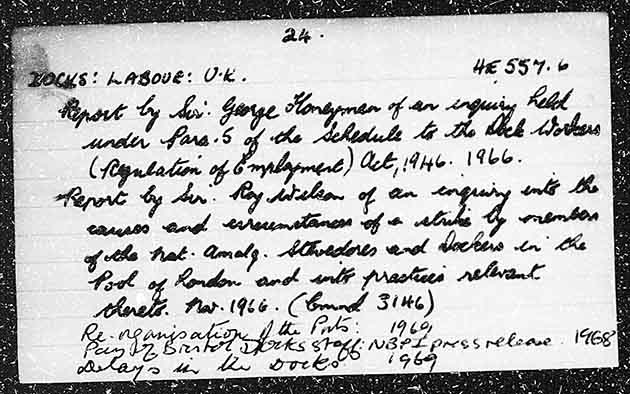 24.
DOCKS: LABOUR: U.K. HE 557.6
Report by Sir. George Honeyman of an inquiry held
under Para. 5 of the Schedule to the Dock Workers
(Regulation of Employment) Act, 1946. 1966.
Report by Sir. Roy Wilson of an inquiry into the
causes and circumstances of a strike by members
of the Nat. Amalg. Stevedores and Dockers in the
Pool of London and into practices relevant
thereto. Nov. 1966. (Cmnd 3146)
Re-organisation of the Ports: 1969
Pay of Bristol Docks staff: NBPI press release. 1968
Delays in the Docks. 1969